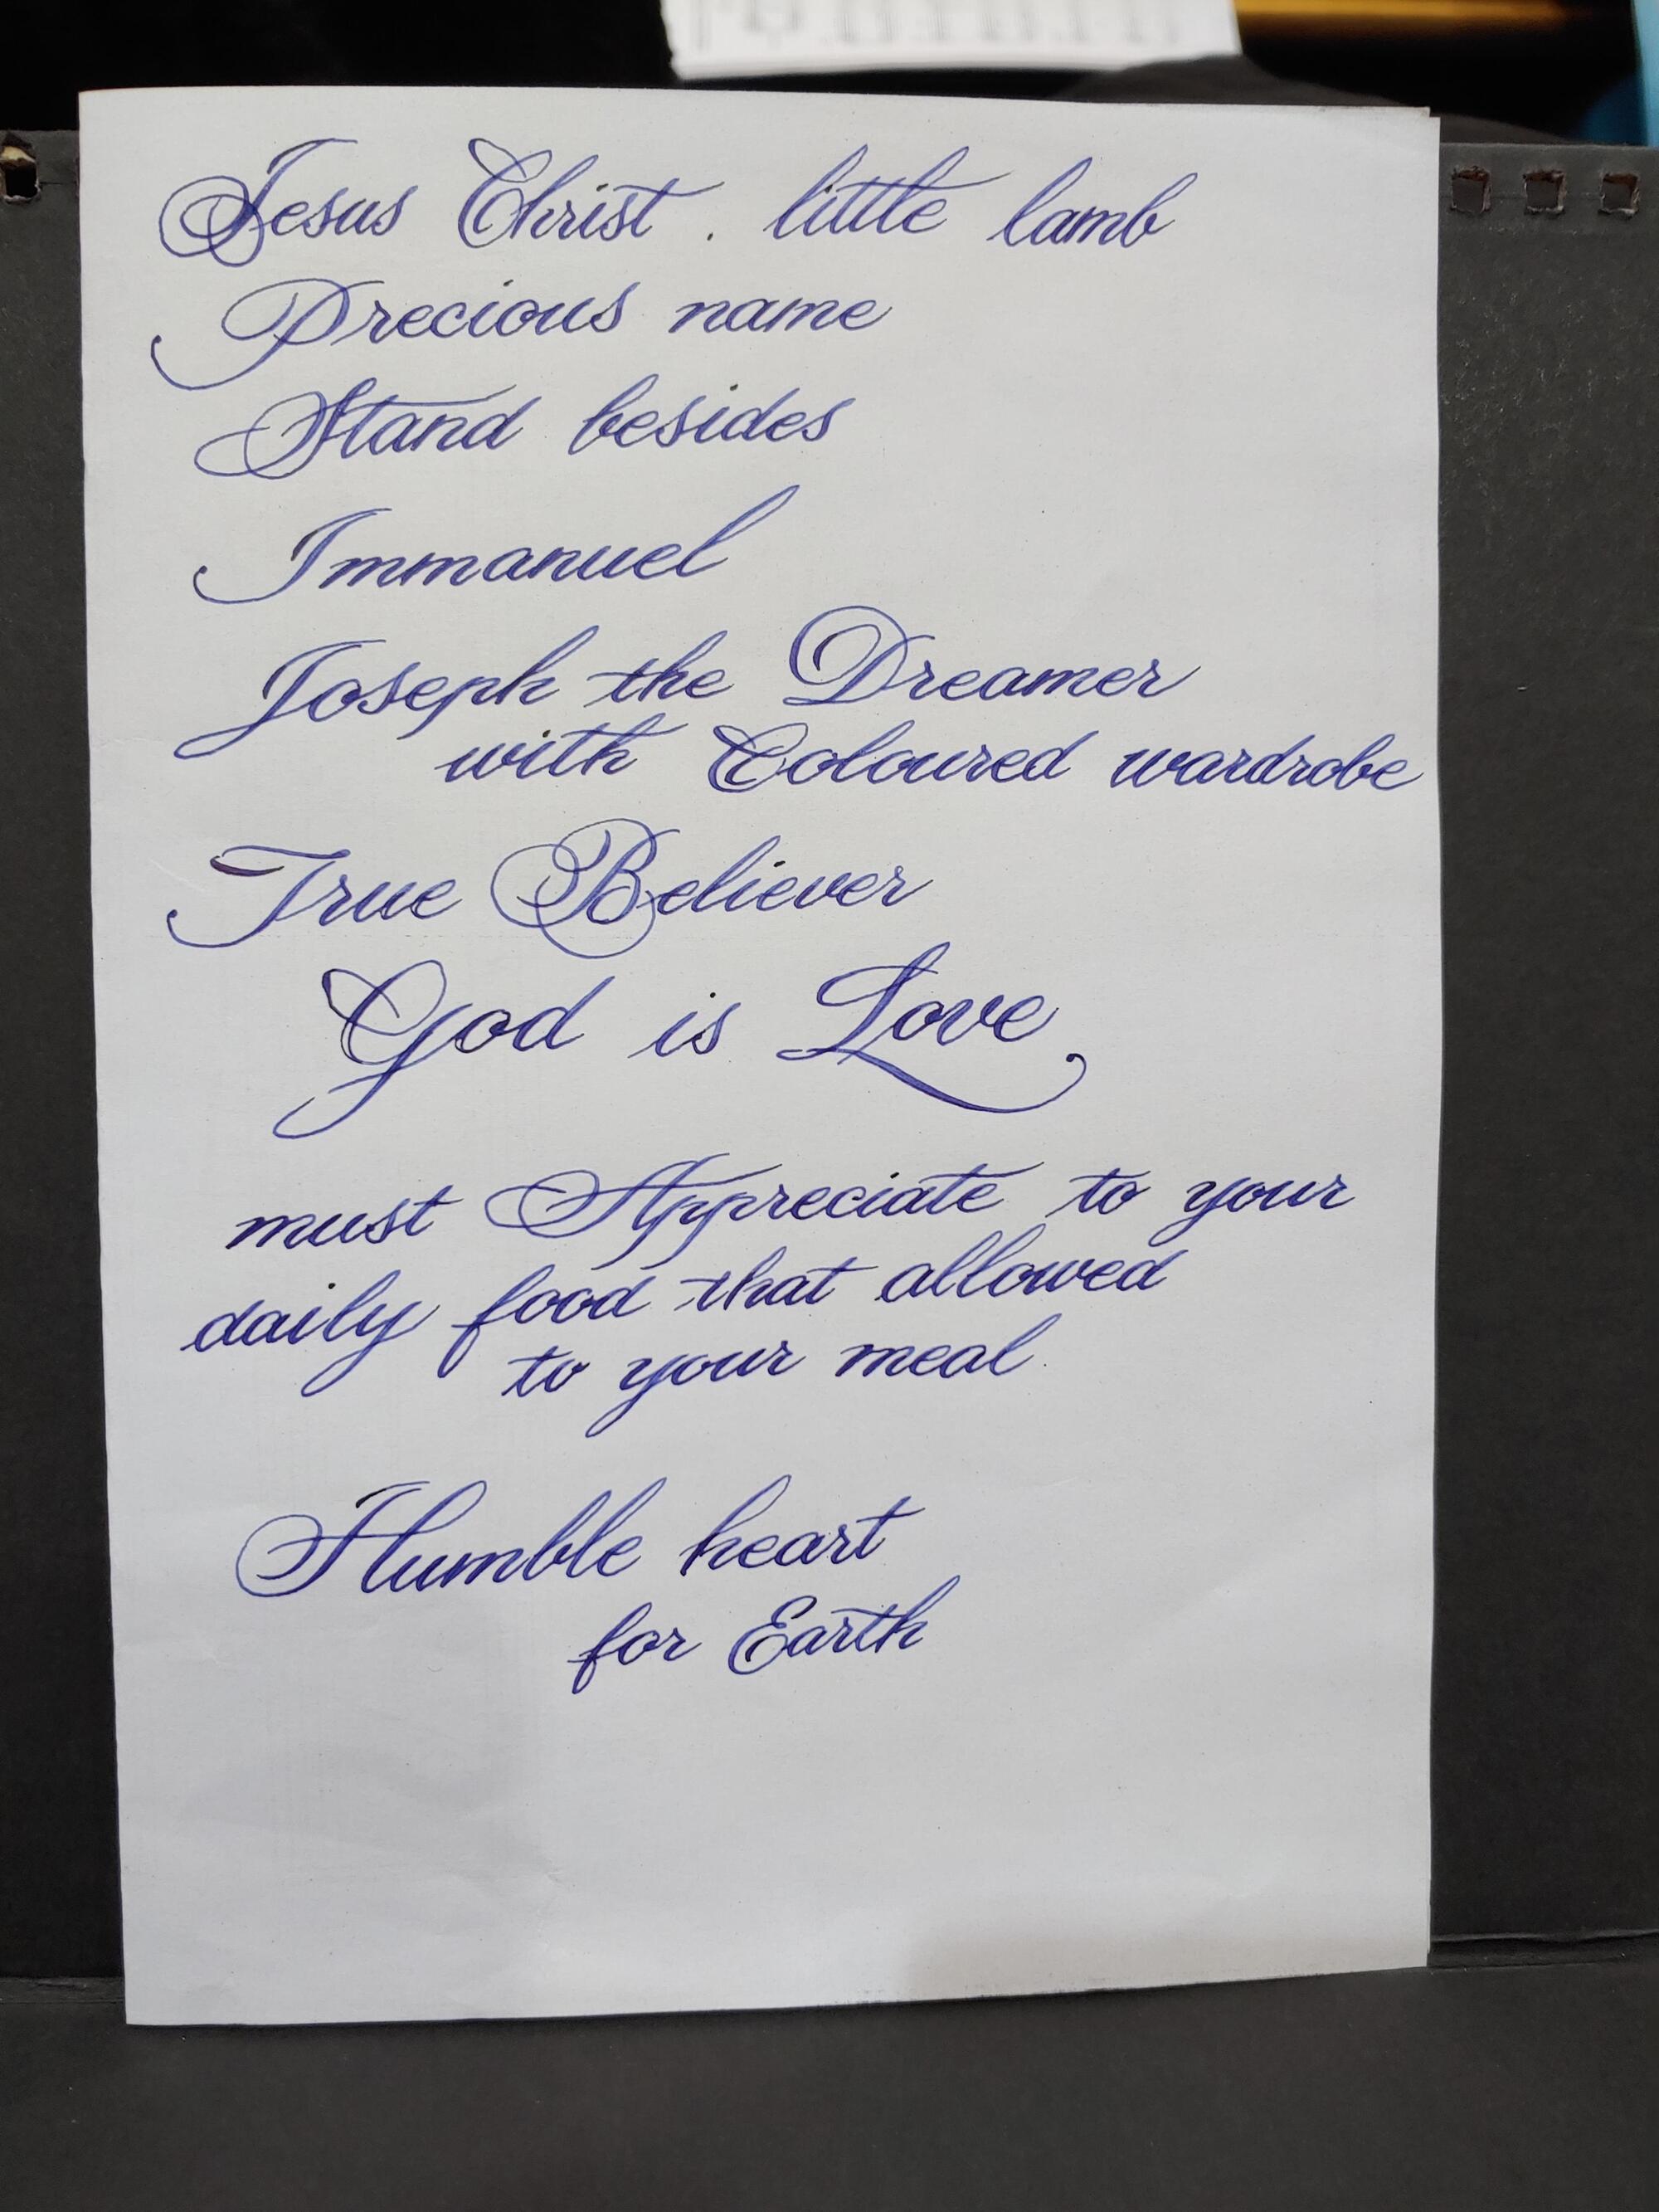 Jesus Christ . little lamb
Precious name
Stand besides
Immanuel
Joseph the Dreamer
with Coloured wardrobe
True Believer
God is Love
must Appreciate to your
daily food that allowed
to your meal.
Humble heart
for Earth